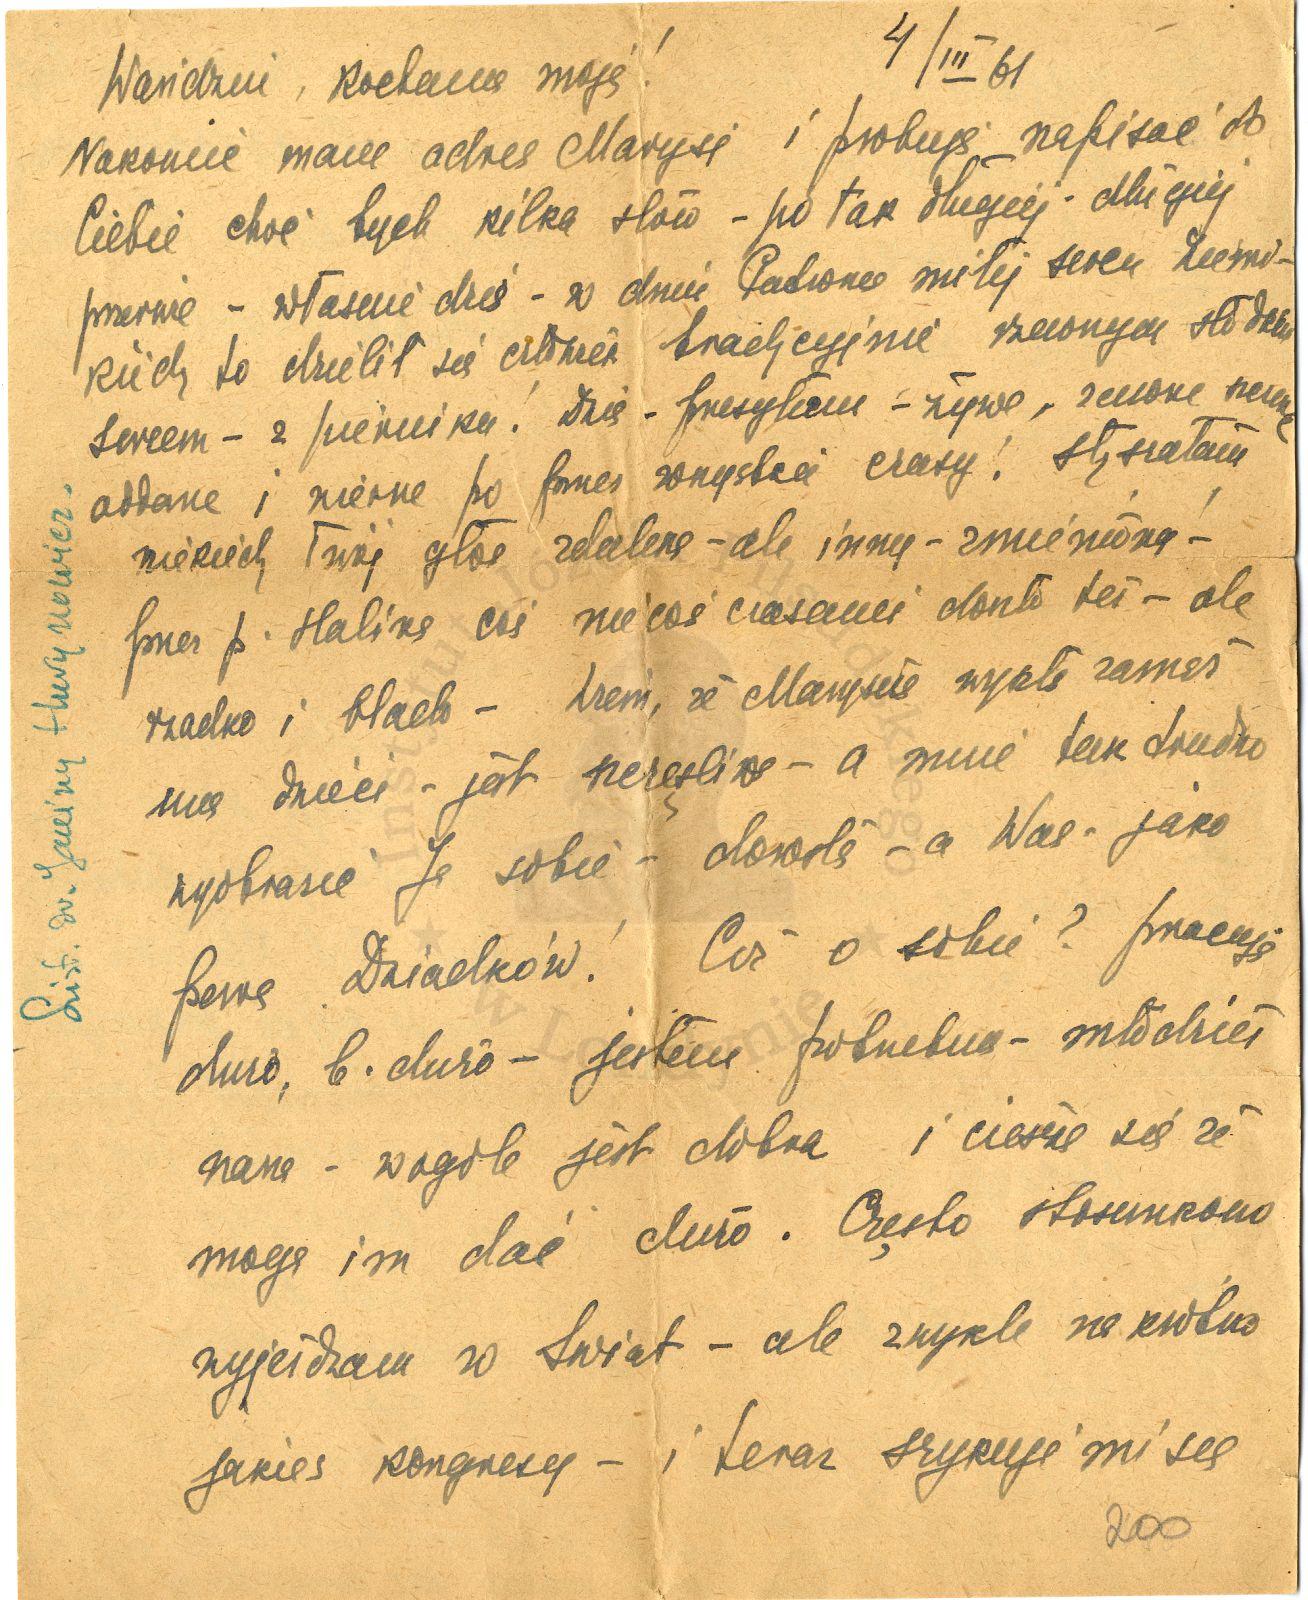 4/III 61
Wandziu, kochana moja!
Nakoniec mam adres Marysi i próbuję napisać do
Ciebie choć bych kilka słów - po tak długiej - długiej
przerwie - właśnie dziś - w dniu Patrona miłej sercu
kiedy to dzielił się człowiek tradycyjnie słodkim
sercem - z piernika! Dziś - przesyłam - żywe,
oddane i wierne po przez wszystkie czasy! Słyszałam
niekiedy Twój głos zdaleka - ale inny - zmieniony -
przez p. Halinę coś niecoś czasami doszło też - ale
rzadko i blado - Wiem, że Marysia wyszła zamąż
ma dzieci - jest szczęśliwa - a mnie tak trudno
wyobrazić Ją sobie - dorosłą - a Was - jako
parę Dziadków! Cóż o sobie? pracuję
dużo, b. dużo - jestem potrzebna - młodzież
nasza - wogóle jest dobra i cieszę się że
mogę im dać dużo. Często stosunkowo
wyjeżdżam w Świat - ale zwykle na krótko
jakieś kongresy - i teraz szykuje mi się
200
List. dr. Janiny Hurynowicz.
Instytut Józefa Piłsudskiego
w Londynie